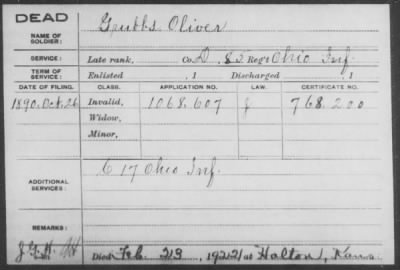 DEAD
NAME OF SOLDIER: Grubbs Oliver
SERVICE: Late rank, Co. D, 83 Reg't Ohio Inf.
TERM OF SERVICE: Enlisted , 1 Discharged , 1
DATE OF FILING. CLASS. APPLICATION NO. LAW. CERTIFICATE NO.
1890. Oct. 26 Invalid, 1068.607 J 768.200
Widow,
Minor,
ADDITIONAL SERVICES: C 17 Ohio Inf.
REMARKS:
Died Feb. 23, 1922, at Holton, Kans.